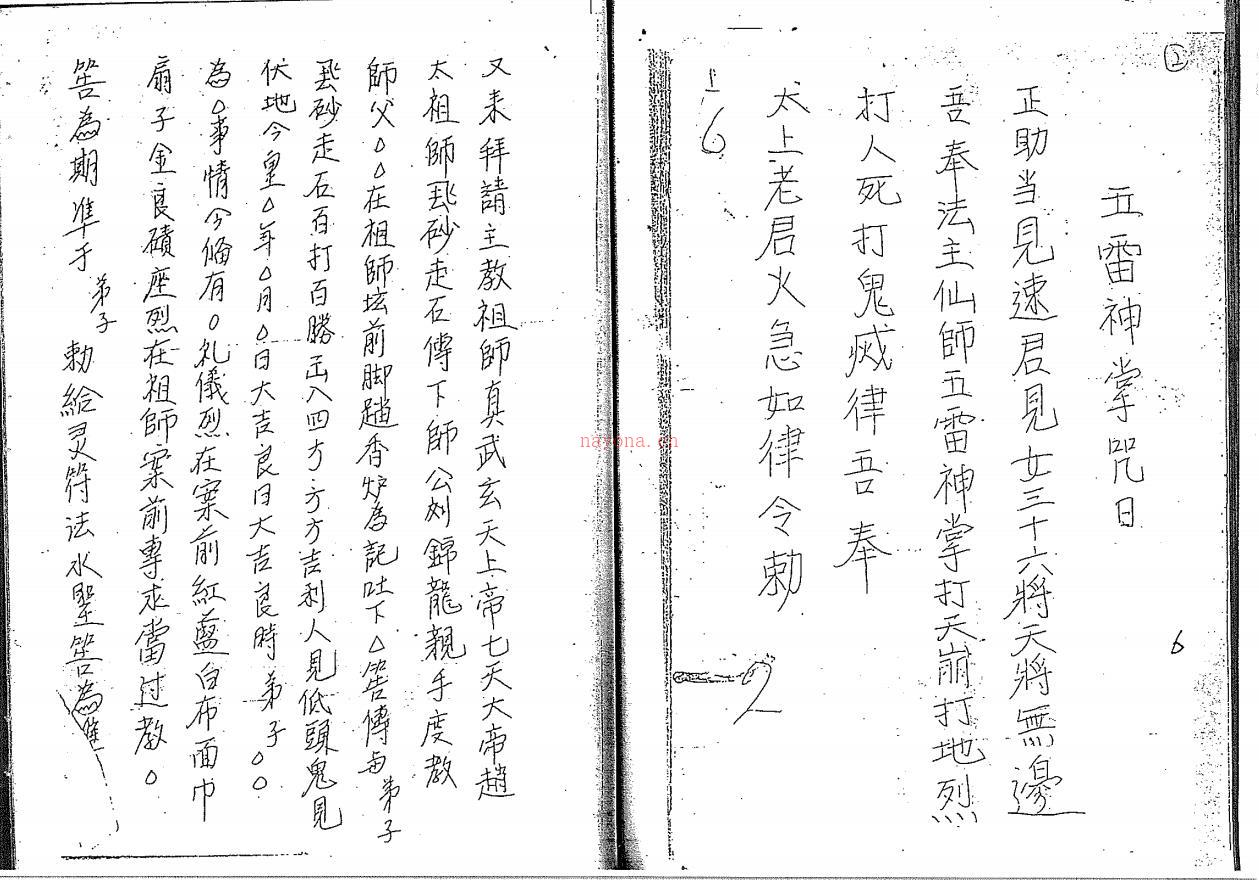 ②
五雷神掌咒日
正助当見速君見女三十六將天將無邊
吾奉法主仙師五雷神掌打天崩打地烈
打人死打鬼灭律吾奉
太上老君火急如律令勅
6
6
2
又来拜請主教祖師真武玄天上帝七天大帝趙
太祖師飛砂走石傳下師公刘錦龍親手度教
師父△△在祖師坛前脚踏香炉為記吐下△筶傳与弟子
飛砂走石百打百勝出入四方方方吉利人見低頭鬼見
伏地今皇△年△月△日大吉良日大吉良時弟子○○
為△事情今俻有○礼儀烈在案前紅藍白布面巾
扇子金良磧座烈在祖師案前專求當过教○
筶為期準于弟子勅給灵符法水聖筶為準
nayona.cn